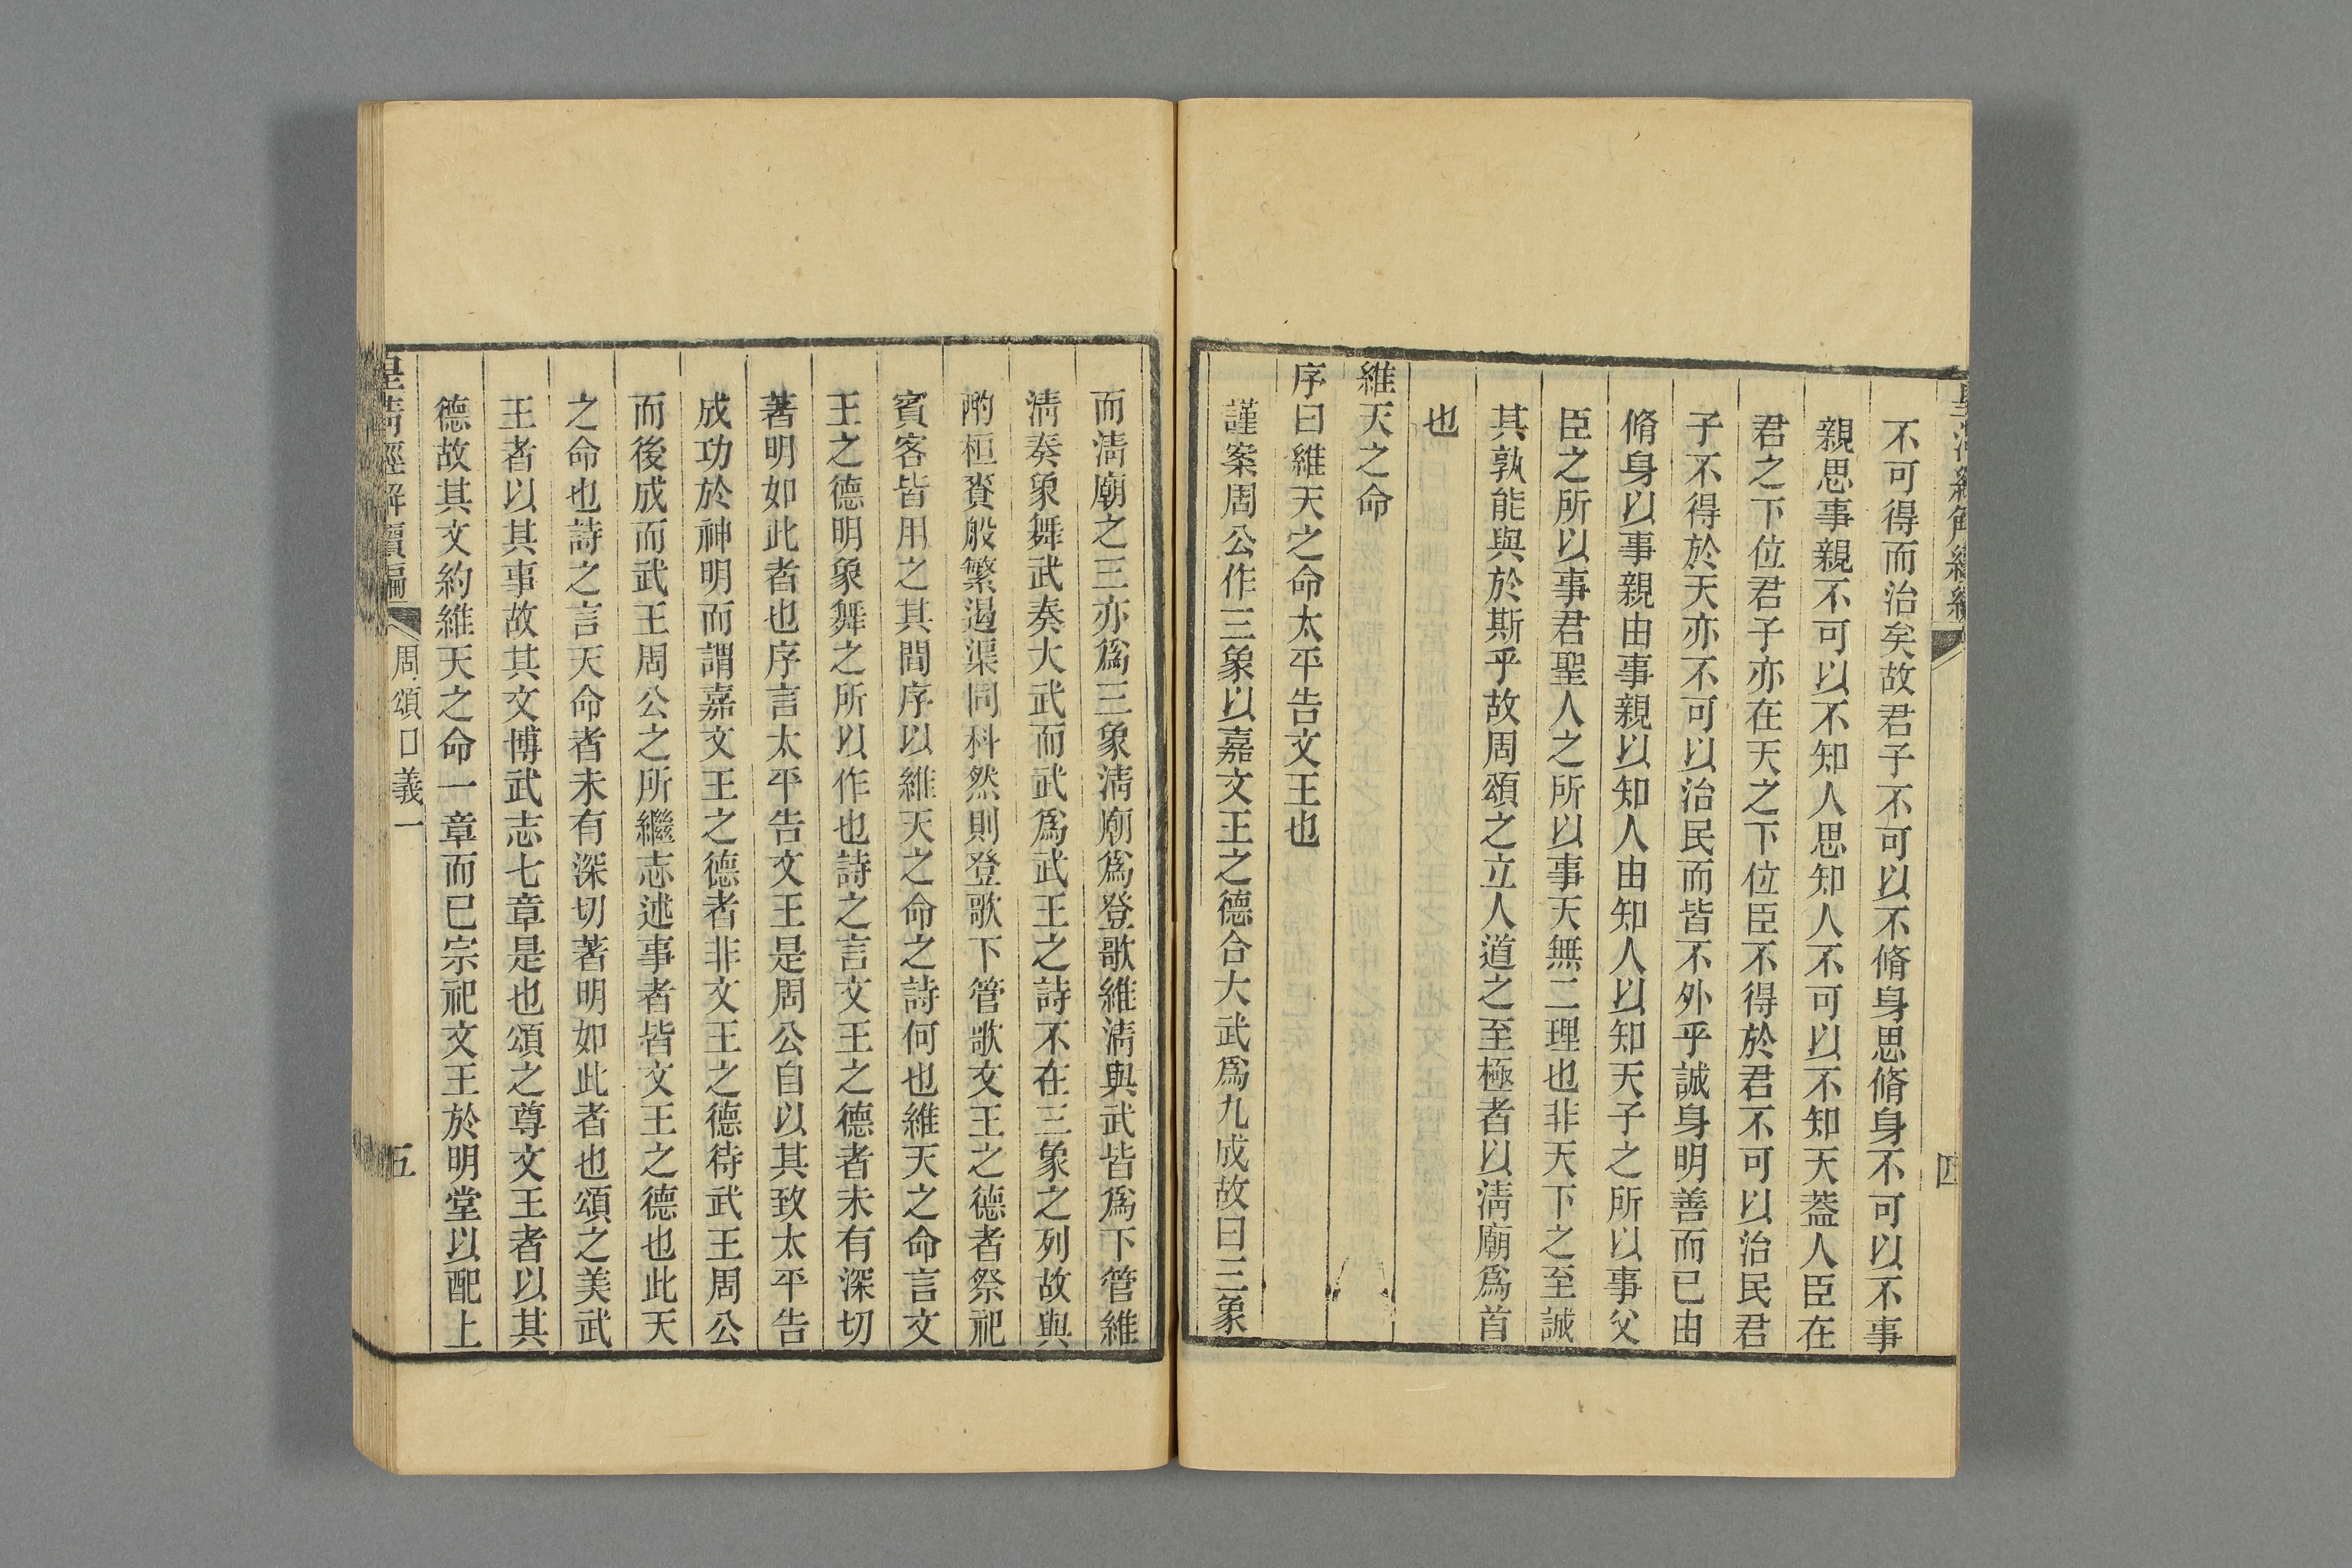 皇清經解續編
四
不可得而治矣故君子不可以不脩身思脩身不可以不事
親思事親不可以不知人思知人不可以不知天葢人臣在
君之下位君子亦在天之下位臣不得於君不可以治民君
子不得於天亦不可以治民而皆不外乎誠身明善而已由
脩身以事親由事親以知人由知人以知天子之所以事父
臣之所以事君聖人之所以事天無二理也非天下之至誠
其孰能與於斯乎故周頌之立人道之至極者以淸廟爲首
也
維天之命
序曰維天之命太平告文王也
謹案周公作三象以嘉文王之德合大武爲九成故曰三象
而淸廟之三亦爲三象淸廟爲登歌維淸與武皆爲下管維
淸奏象舞武奏大武而武爲武王之詩不在三象之列故與
酌桓賚般繁遏渠同科然則登歌下管歌文王之德者祭祀
賓客皆用之其間序以維天之命之詩何也維天之命言文
王之德明象舞之所以作也詩之言文王之德者未有深切
著明如此者也序言太平告文王是周公自以其致太平告
成功於神明而謂嘉文王之德者非文王之德待武王周公
而後成而武王周公之所繼志述事者皆文王之德也此天
之命也詩之言天命者未有深切著明如此者也頌之美武
王者以其事故其文博武志七章是也頌之尊文王者以其
德故其文約維天之命一章而已宗祀文王於明堂以配上
皇淸經解續編
周頌口義一
五